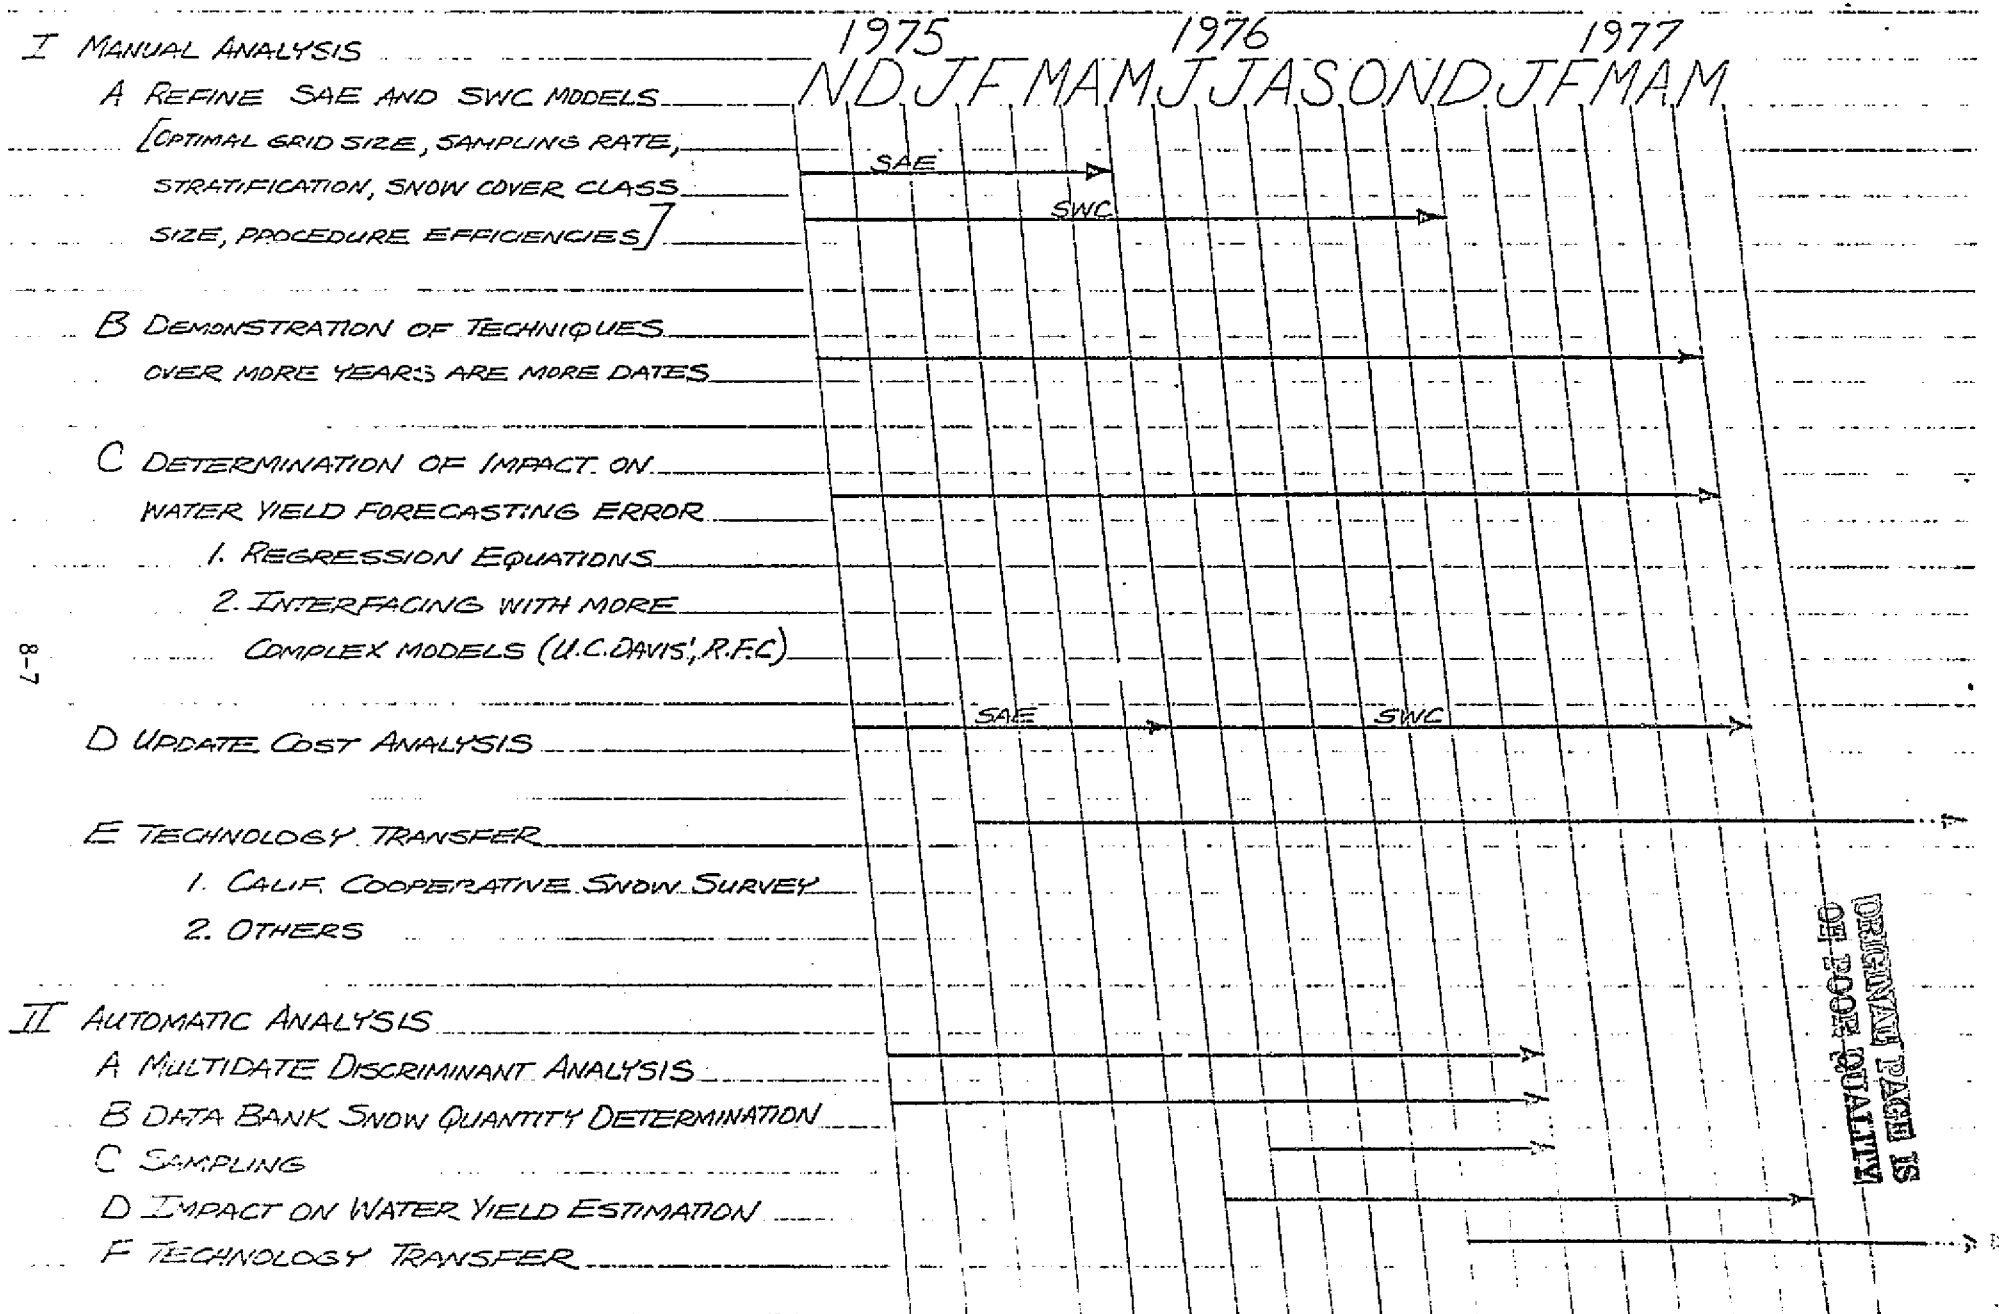 1975 1976 1977
I MANUAL ANALYSIS
N D J F M A M J J A S O N D J F M A M
A REFINE SAE AND SWC MODELS
[OPTIMAL GRID SIZE, SAMPLING RATE,
SAE
STRATIFICATION, SNOW COVER CLASS
SWC
SIZE, PROCEDURE EFFICIENCIES]
B DEMONSTRATION OF TECHNIQUES
OVER MORE YEARS ARE MORE DATES
C DETERMINATION OF IMPACT ON
WATER YIELD FORECASTING ERROR
1. REGRESSION EQUATIONS
2. INTERFACING WITH MORE
COMPLEX MODELS (U.C.DAVIS', R.F.C)
8-7
SAE SWC
D UPDATE COST ANALYSIS
E TECHNOLOGY TRANSFER
1. CALIF. COOPERATIVE SNOW SURVEY
2. OTHERS
ORIGINAL PAGE IS
OF POOR QUALITY
II AUTOMATIC ANALYSIS
A MULTIDATE DISCRIMINANT ANALYSIS
B DATA BANK SNOW QUANTITY DETERMINATION
C SAMPLING
D IMPACT ON WATER YIELD ESTIMATION
F TECHNOLOGY TRANSFER